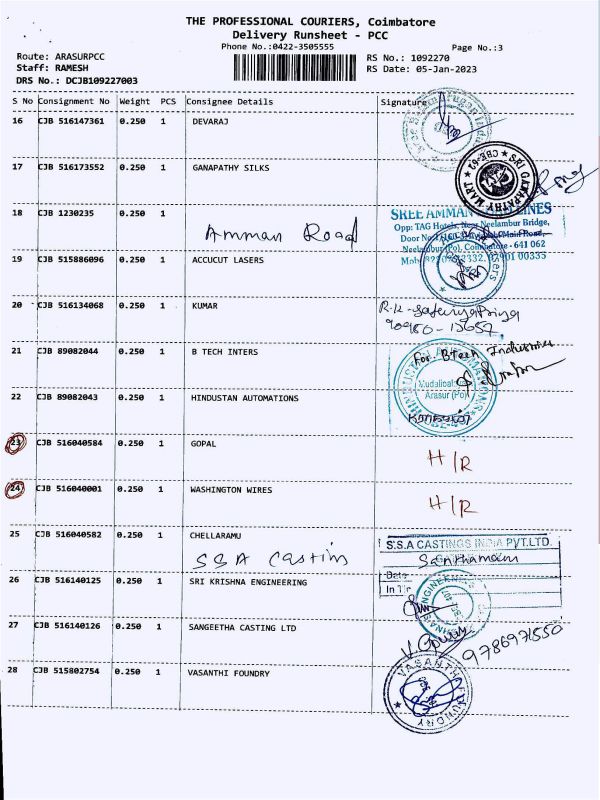 THE PROFESSIONAL COURIERS, Coimbatore
Delivery Runsheet - PCC
Phone No.:0422-3505555
Page No.:3
Route: ARASURPCC
RS No.: 1092270
Staff: RAMESH
RS Date: 05-Jan-2023
DRS No.: DCJB109227003
S No Consignment No Weight PCS Consignee Details Signature
16 CJB 516147361 0.250 1 DEVARAJ
17 CJB 516173552 0.250 1 GANAPATHY SILKS
SRI GANAPATHY MART
CBE-62
18 CJB 1230235 0.250 1
Amman Road
SREE AMMAN
Opp: TAG Hotels, Near Neelambur Bridge,
Coimbatore - 641 062
19 CJB 515886096 0.250 1 ACCUCUT LASERS
20 CJB 516134068 0.250 1 KUMAR
21 CJB 89082044 0.250 1 B TECH INTERS
For BTech Industries
22 CJB 89082043 0.250 1 HINDUSTAN AUTOMATIONS
HINDUSTAN AUTOMATIONS
Arasur (Po)
23 CJB 516040584 0.250 1 GOPAL
H/R
24 CJB 516040001 0.250 1 WASHINGTON WIRES
H/R
25 CJB 516040582 0.250 1 CHELLARAMU
SSA Castins
S.S.A CASTINGS INDIA PVT.LTD.
Santhamani
Date
26 CJB 516140125 0.250 1 SRI KRISHNA ENGINEERING
27 CJB 516140126 0.250 1 SANGEETHA CASTING LTD
9786971550
28 CJB 515802754 0.250 1 VASANTHI FOUNDRY
VASANTHI FOUNDRY